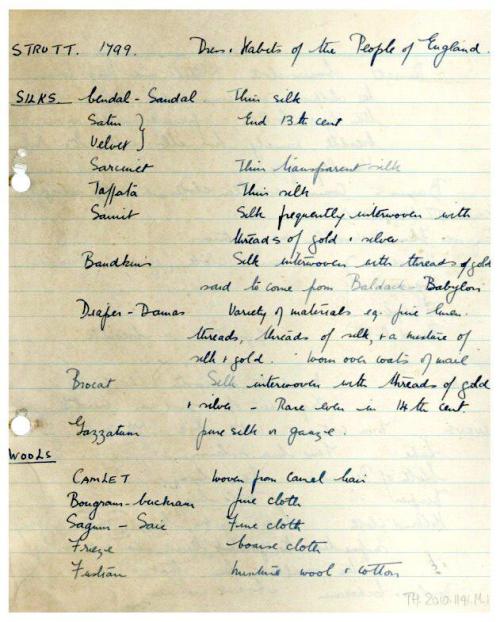 STRUTT. 1799. Dress & Habits of the People of England.
SILKS Cendal - Sandal Thin silk
Satin } End 13th cent
Velvet
Sarcinet Thin transparent silk
Taffata Thin silk
Samit Silk frequently interwoven with
threads of gold & silver
Baudkins Silk interwoven with threads of gold
said to come from Baldack - Babylon
Diaper - Damas Variety of materials eg. fine linen
threads, threads of silk, & a mixture of
silk & gold. Worn over coats of mail
Brocat Silk interwoven with threads of gold
& silver - Rare even in 14th cent
Gazzatum fine silk or gauze.
WOOLS
CAMLET woven from camel hair
Bougram-buckram fine cloth
Sagum - Saie Fine cloth
Frieze coarse cloth
Fustian mixture wool & cotton
TH.2010.1191.M.1